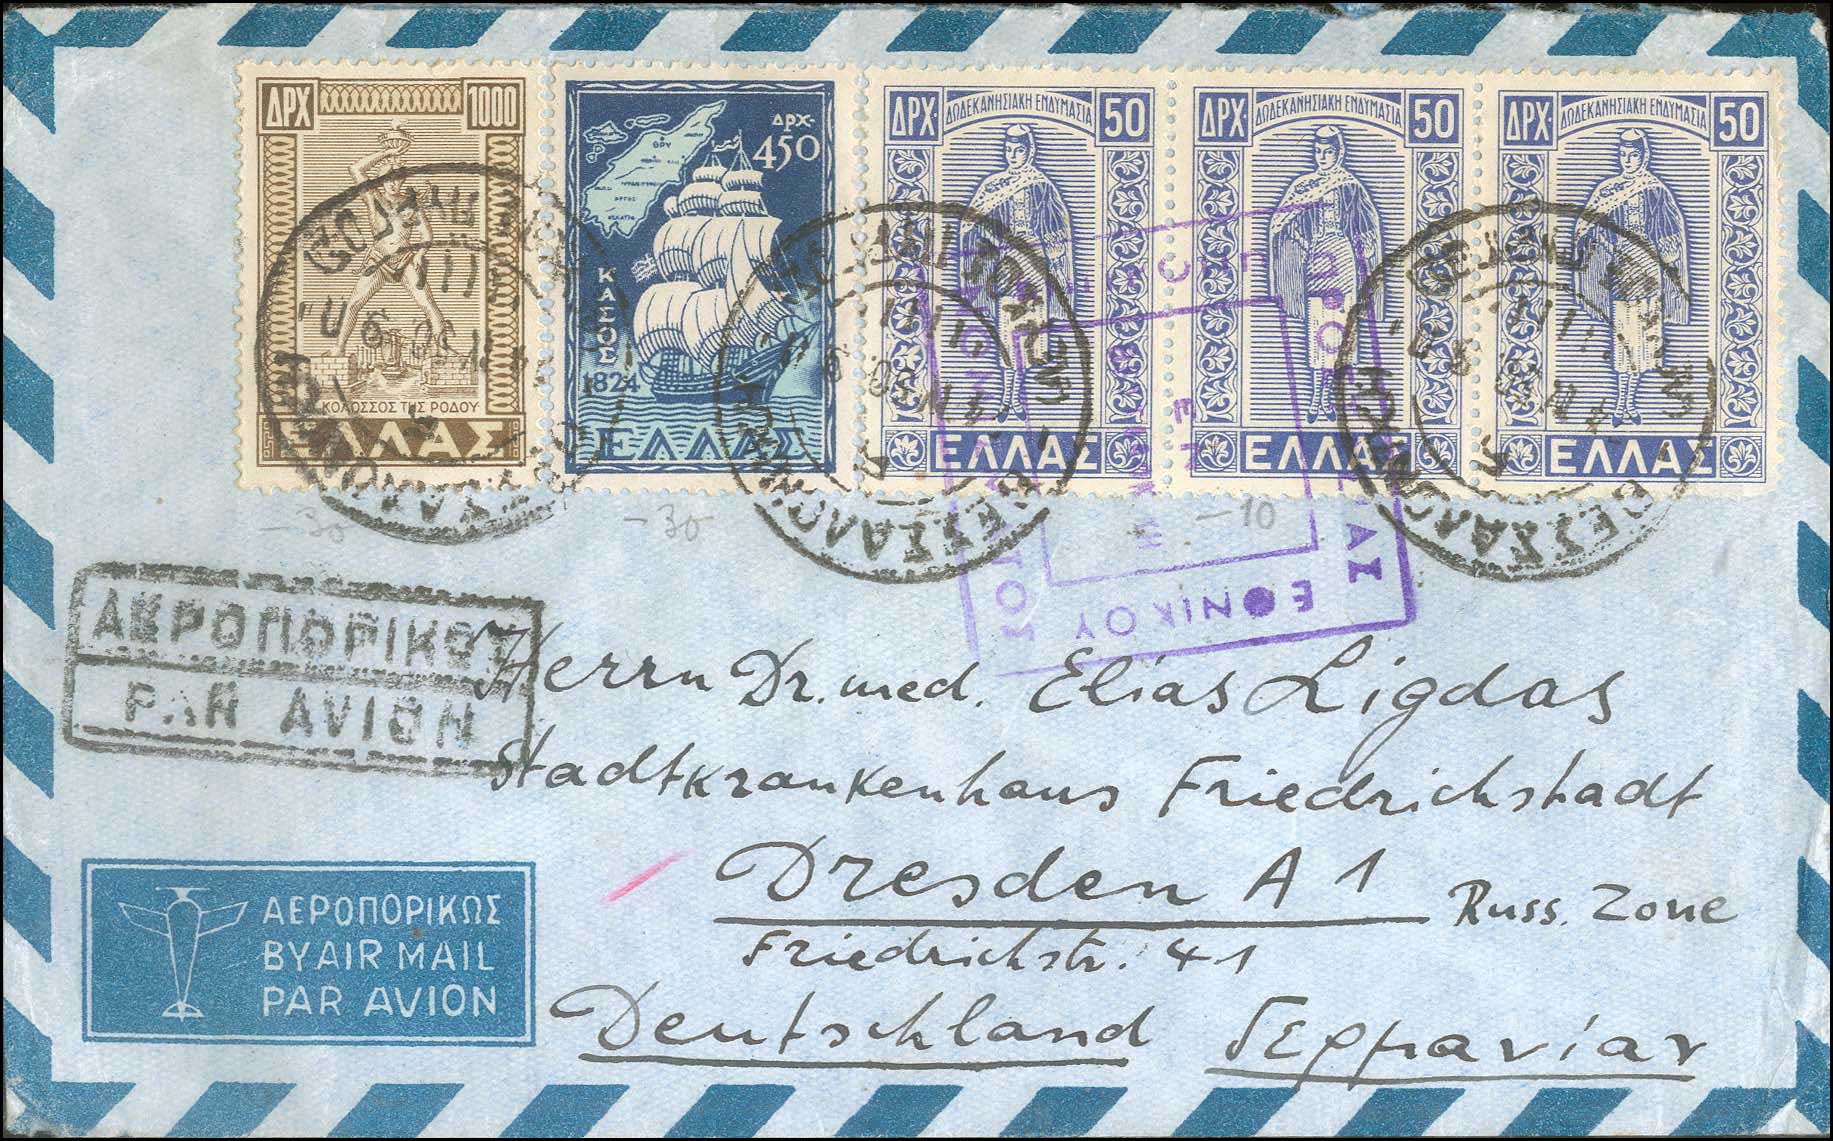 ΔΡΧ 1000
ΚΟΛΟΣΣΟΣ ΤΗΣ ΡΟΔΟΥ
ΕΛΛΑΣ
ΔΡΧ·
450
ΚΑΣΟΣ
1824
ΕΛΛΑΣ
ΔΡΧ· ΔΩΔΕΚΑΝΗΣΙΑΚΗ ΕΝΔΥΜΑΣΙΑ 50
ΕΛΛΑΣ
ΔΡΧ· ΔΩΔΕΚΑΝΗΣΙΑΚΗ ΕΝΔΥΜΑΣΙΑ 50
ΕΛΛΑΣ
ΔΡΧ· ΔΩΔΕΚΑΝΗΣΙΑΚΗ ΕΝΔΥΜΑΣΙΑ 50
ΕΛΛΑΣ
-30
-30
-10
ΕΘΝΙΚΟΥ
ΑΕΡΟΠΟΡΙΚΩΣ
PAR AVION
Herrn Dr. med. Elias Ligdas
Stadtkrankenhaus Friedrichstadt
Dresden A 1 Russ. Zone
Friedrichstr. 41
Deutschland Γερμανίαν
ΑΕΡΟΠΟΡΙΚΩΣ
BY AIR MAIL
PAR AVION